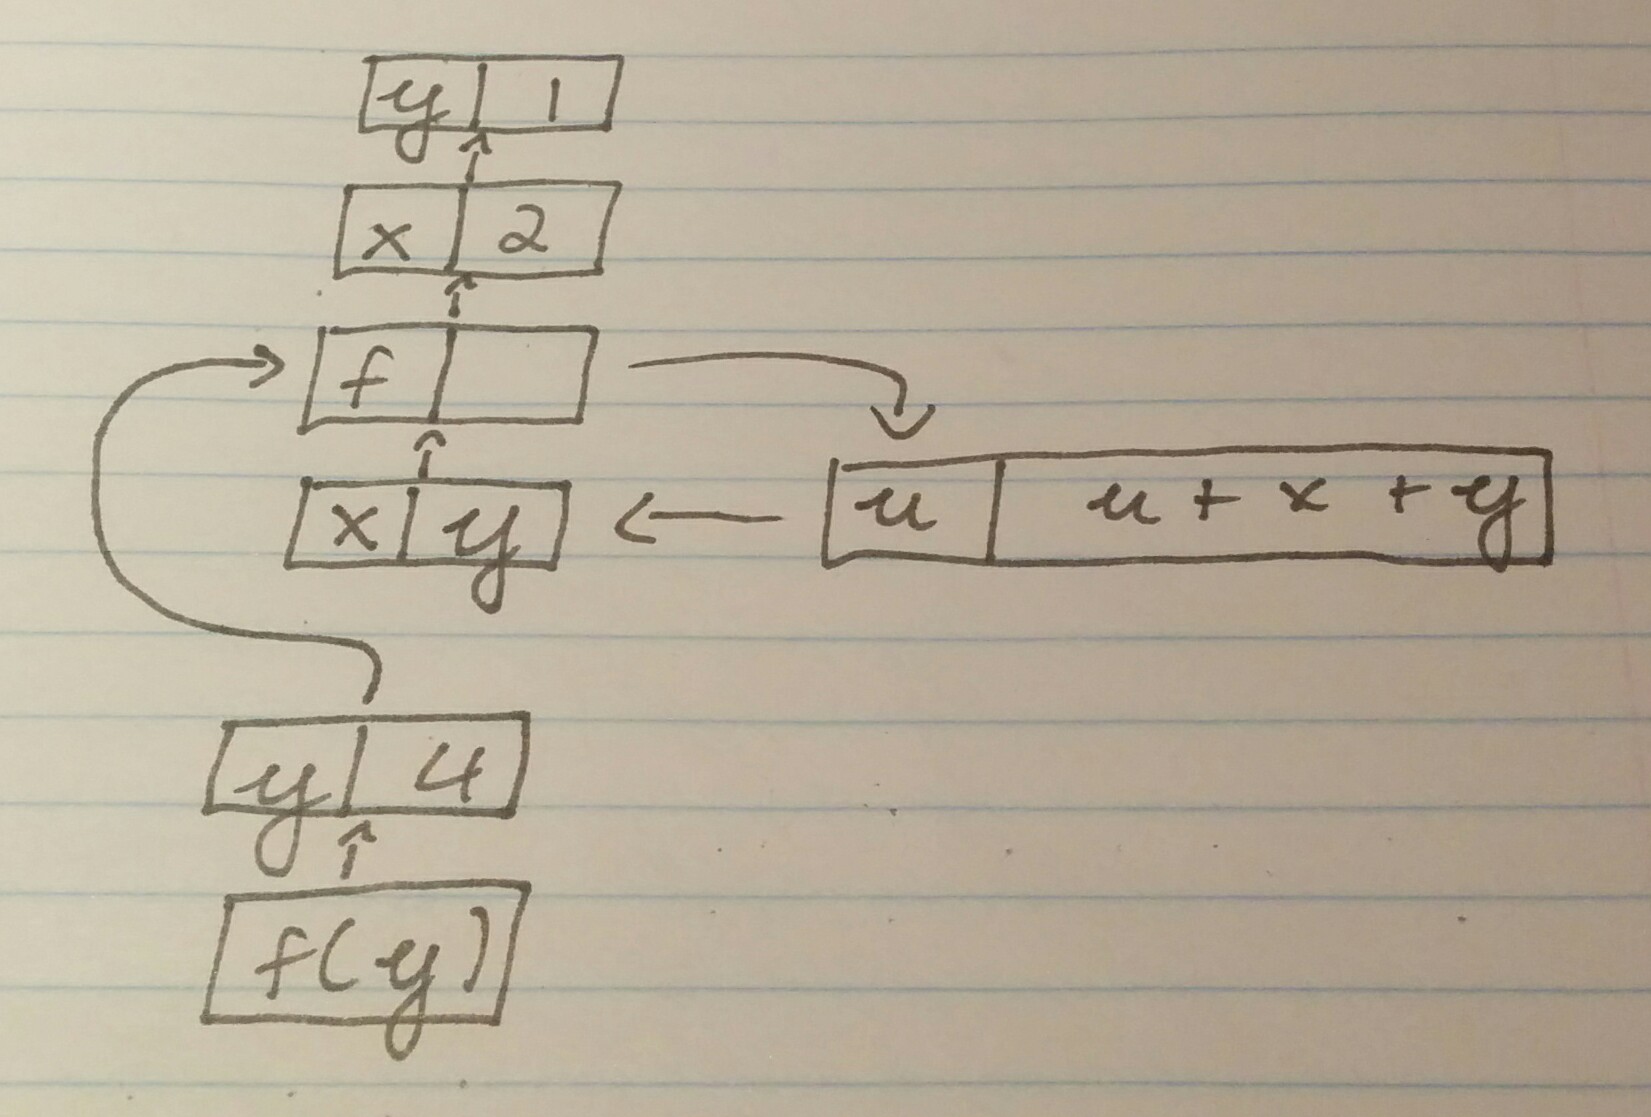 y 1
x 2
f
x y
u u + x + y
y 4
f(y)